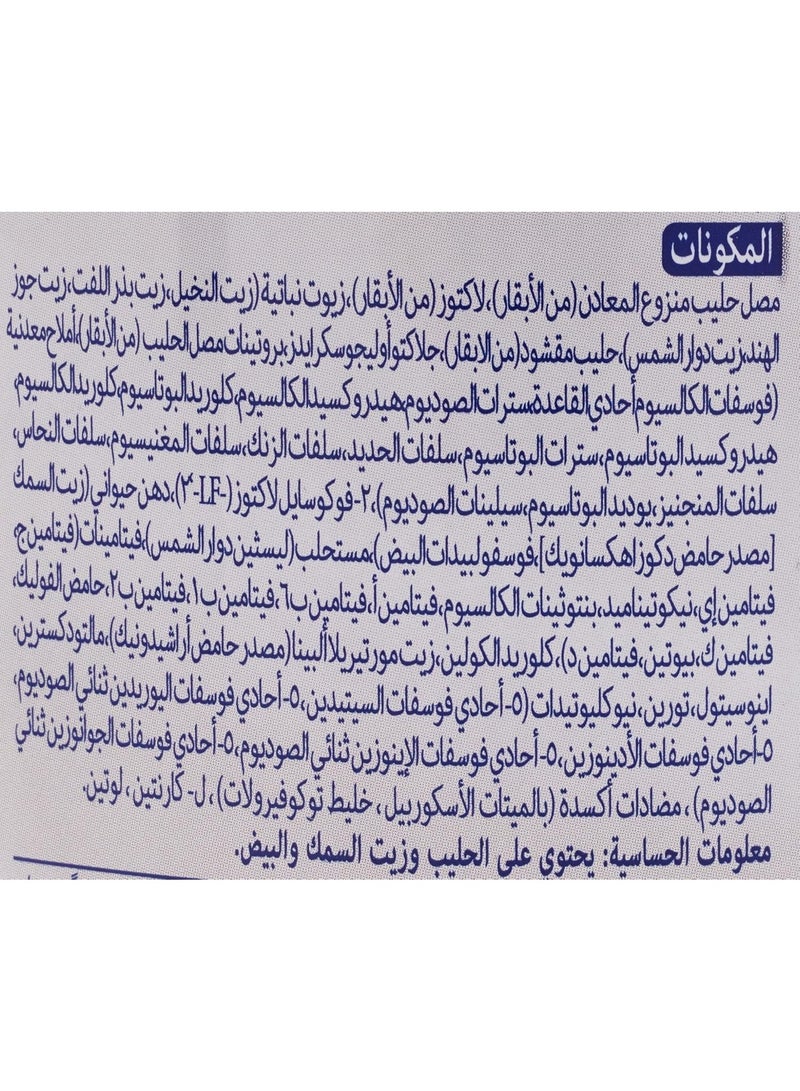 المكونات
مصل حليب منزوع المعادن (من الأبقار)، لاكتوز (من الأبقار)، زيوت نباتية (زيت النخيل، زيت بذر اللفت، زيت جوز
الهند، زيت دوار الشمس)، حليب مقشود (من الابقار)، جلاكتو أوليجوسكرايدز، بروتينات مصل الحليب (من الأبقار)، أملاح معدنية
(فوسفات الكالسيوم أحادي القاعدة، سترات الصوديوم، هيدروكسيد الكالسيوم، كلوريد البوتاسيوم، كلوريد الكالسيوم،
هيدروكسيد البوتاسيوم، سترات البوتاسيوم، سلفات الحديد، سلفات الزنك، سلفات المغنيسيوم، سلفات النحاس،
سلفات المنجنيز، يوديد البوتاسيوم، سيلينات الصوديوم)، ٢- فوكوسايل لاكتوز (-LF-٢')، دهن حيواني (زيت السمك
[مصدر حامض دكوزاهكسانويك]، فوسفولبيدات البيض)، مستحلب (ليسثين دوار الشمس)، فيتامينات (فيتامين ج،
فيتامين إي، نيكوتيناميد، بنتوثينات الكالسيوم، فيتامين أ، فيتامين ب٦، فيتامين ب١، فيتامين ب٢، حامض الفوليك،
فيتامين ك، بيوتين، فيتامين د)، كلوريد الكولين، زيت مورتيريلا ألبينا (مصدر حامض أراشيدونيك)، مالتودكسترين،
اينوسيتول، تورين، نيوكليوتيدات (٥- أحادي فوسفات السيتيدين، ٥- أحادي فوسفات اليوريدين ثنائي الصوديوم،
٥- أحادي فوسفات الأدينوزين، ٥- أحادي فوسفات الإينوزين ثنائي الصوديوم، ٥- أحادي فوسفات الجوانوزين ثنائي
الصوديوم)، مضادات أكسدة (بالميتات الأسكوربيل، خليط توكوفيرولات)، ل- كارنتين، لوتين.
معلومات الحساسية: يحتوي على الحليب وزيت السمك والبيض.